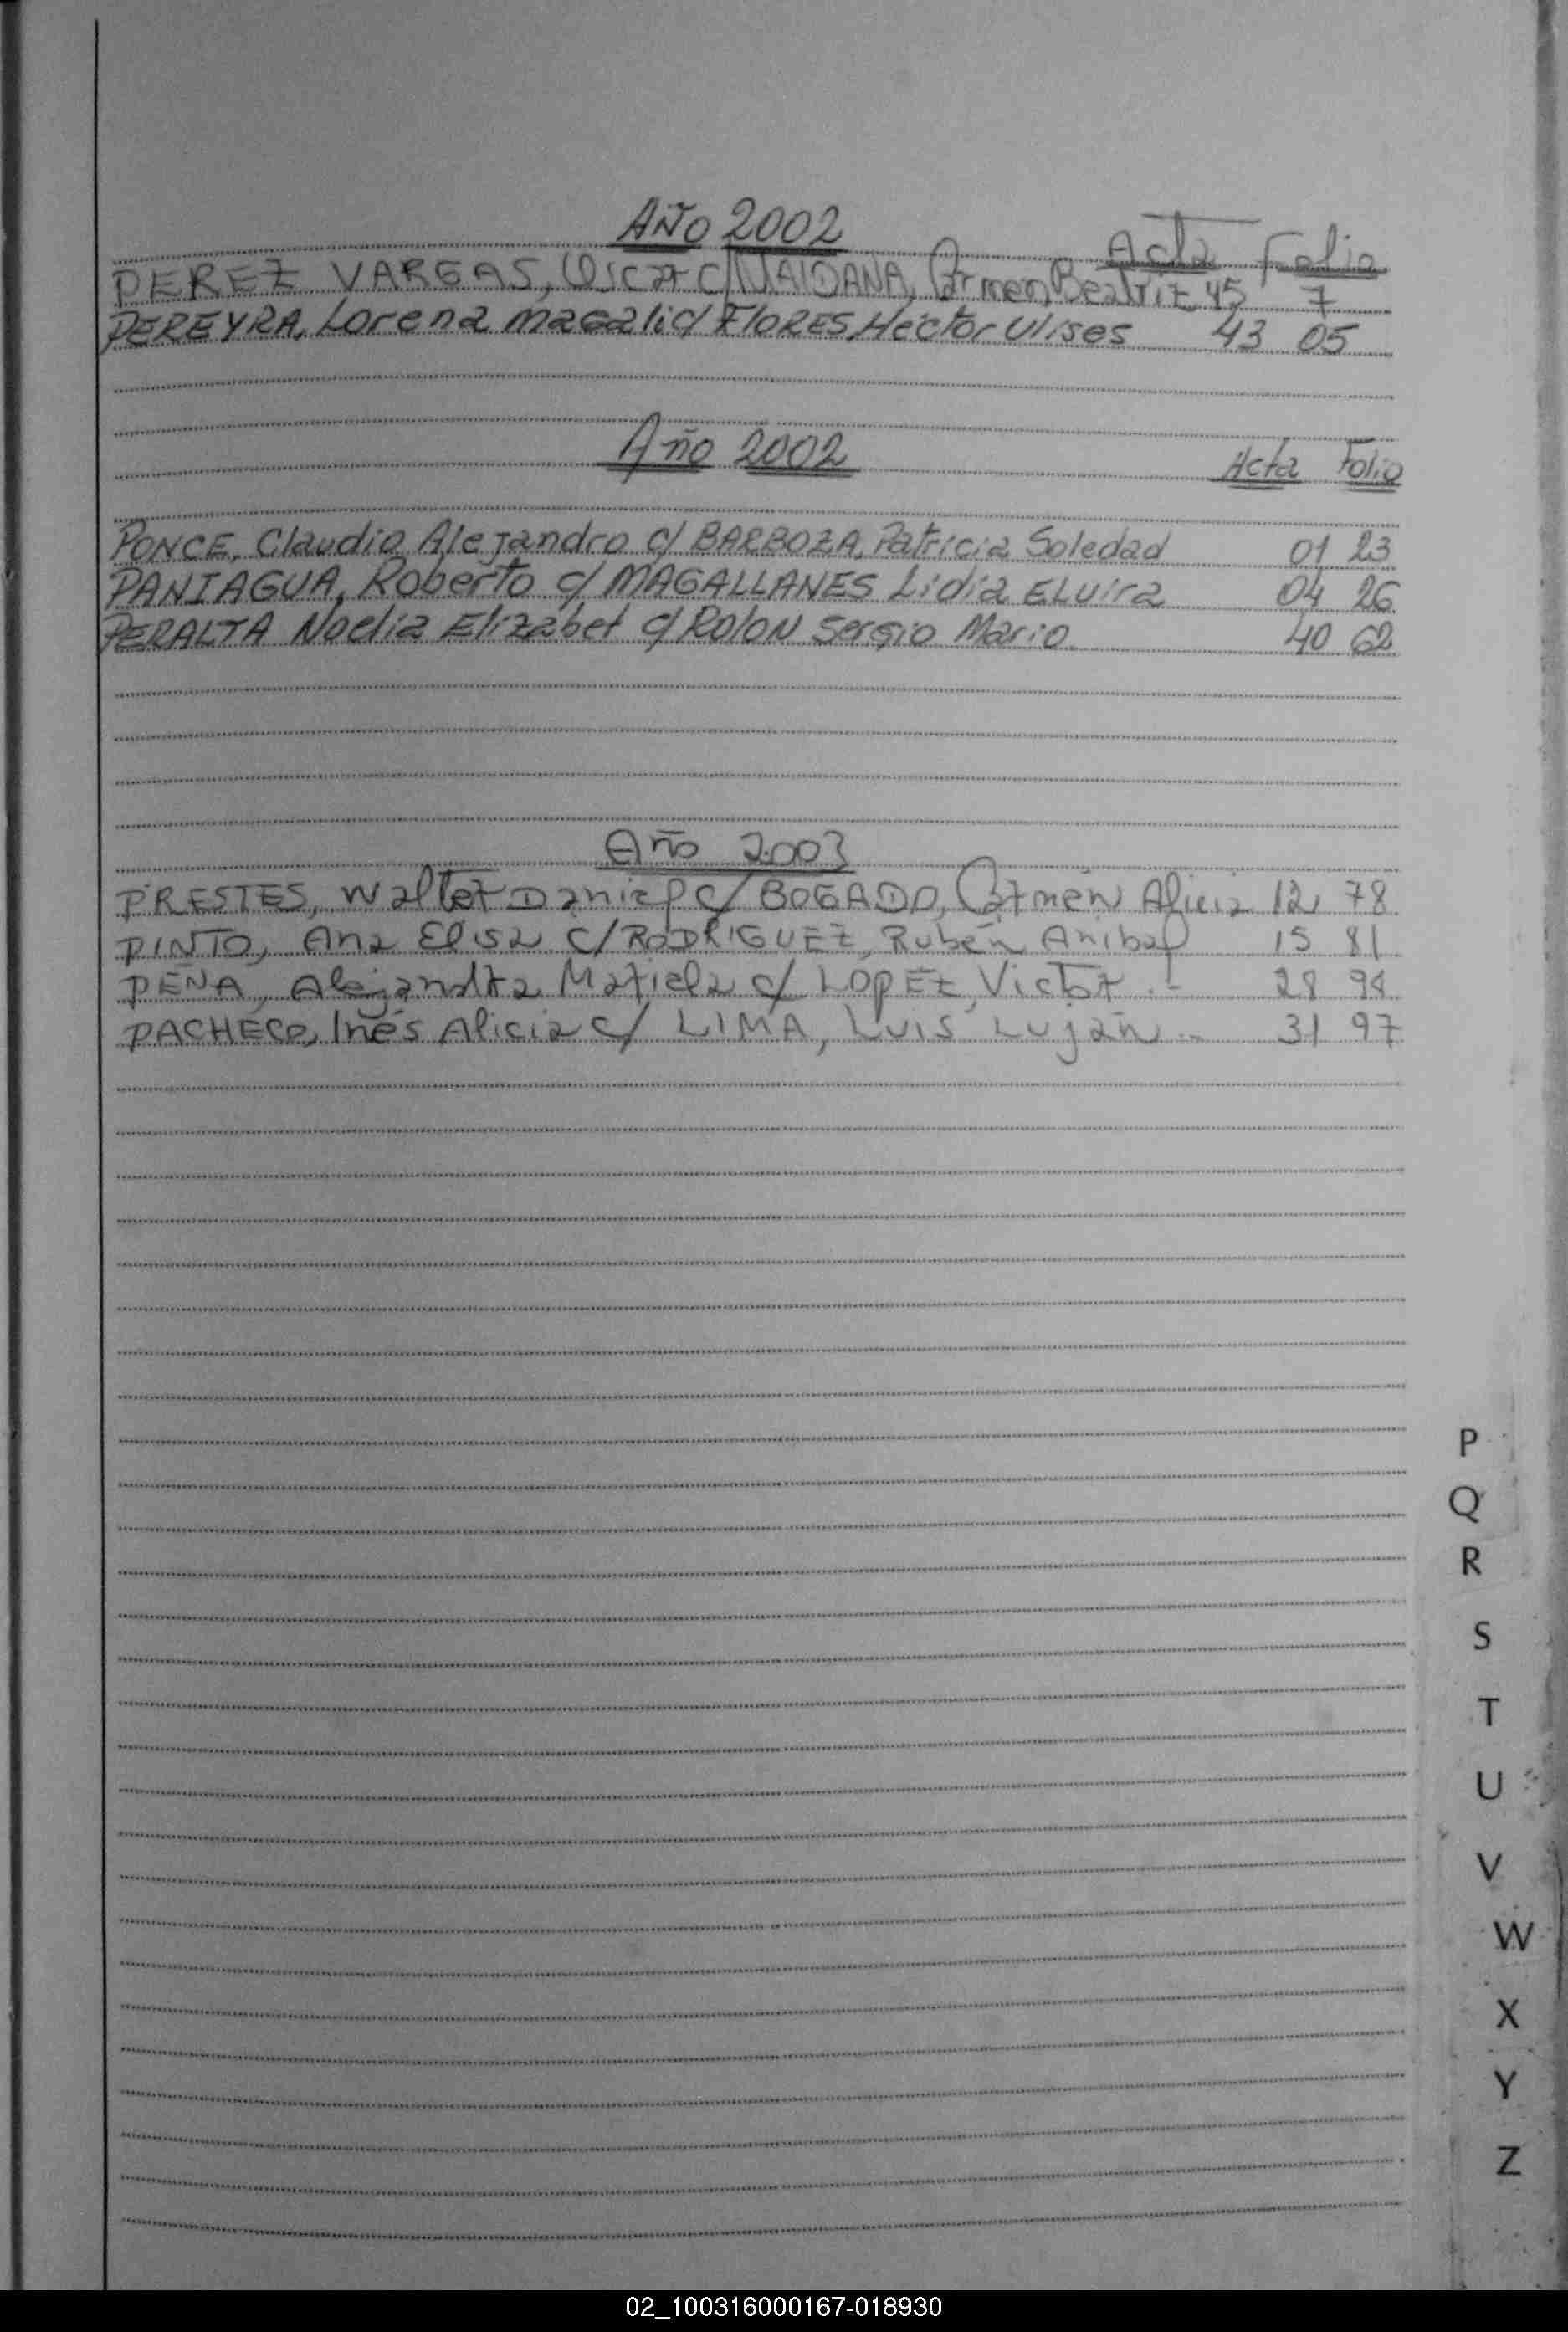 AÑO 2002
Acta Folio
PEREZ VARGAS, Oscar C/ MAIDANA, Carmen Beatriz 45 7
PEREYRA, Lorena Magali c/ FLORES, Héctor Ulises 43 05
Año 2002
Acta Folio
PONCE, Claudio Alejandro c/ BARBOZA, Patricia Soledad 01 23
PANIAGUA, Roberto c/ MAGALLANES Lidia ELVira 04 26
PERALTA Noelia Elizabet c/ ROLON Sergio Mario 40 62
Año 2003
PRESTES, Walter Daniel c/ BOGADO, Carmen Alicia 12 78
PINTO, Ana Elisa C/ RODRIGUEZ, Rubén Anibal 15 81
PEÑA, Alejandra Mariela c/ LOPEZ, Victor .- 28 94
PACHECO, Inés Alicia c/ LIMA, LUIS Luján .- 31 97
P
Q
R
S
T
U
V
W
X
Y
Z
02_100316000167-018930